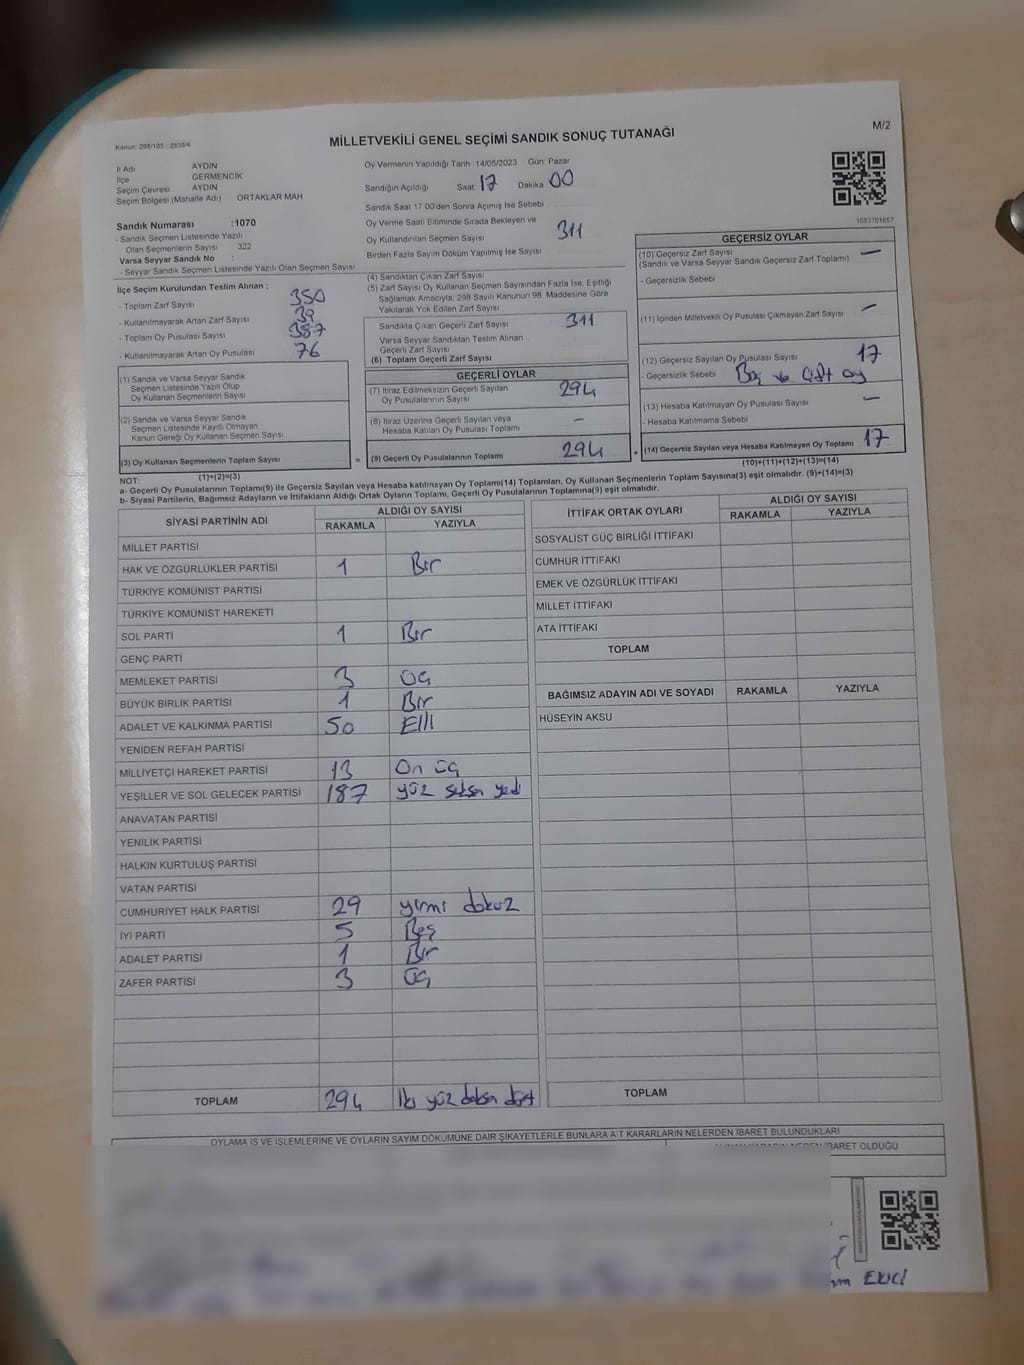 Kanun: 298/105 , 2839/4
MİLLETVEKİLİ GENEL SEÇİMİ SANDIK SONUÇ TUTANAĞI
M/2
İl Adı AYDIN
İlçe GERMENCİK
Seçim Çevresi AYDIN
Seçim Bölgesi (Mahalle Adı) ORTAKLAR MAH
Sandık Numarası :1070
- Sandık Seçmen Listesinde Yazılı
Olan Seçmenlerin Sayısı 322
Varsa Seyyar Sandık No :
- Seyyar Sandık Seçmen Listesinde Yazılı Olan Seçmen Sayısı
İlçe Seçim Kurulundan Teslim Alınan ;
- Toplam Zarf Sayısı 350
- Kullanılmayarak Artan Zarf Sayısı 39
- Toplam Oy Pusulası Sayısı 387
- Kullanılmayarak Artan Oy Pusulası 76
(1) Sandık ve Varsa Seyyar Sandık
Seçmen Listesinde Yazılı Olup
Oy Kullanan Seçmenlerin Sayısı
(2) Sandık ve Varsa Seyyar Sandık
Seçmen Listesinde Kayıtlı Olmayan
Kanun Gereği Oy Kullanan Seçmen Sayısı
(3) Oy Kullanan Seçmenlerin Toplam Sayısı
Oy Vermenin Yapıldığı Tarih 14/05/2023 Gün Pazar
Sandığın Açıldığı Saat 17 Dakika 00
Sandık Saat 17:00'den Sonra Açılmış İse Sebebi
Oy Verme Saati Bitiminde Sırada Bekleyen ve
Oy Kullandırılan Seçmen Sayısı 311
Birden Fazla Sayım Döküm Yapılmış İse Sayısı
(4) Sandıktan Çıkan Zarf Sayısı
(5) Zarf Sayısı Oy Kullanan Seçmen Sayısından Fazla İse, Eşitliği
Sağlamak Amacıyla, 298 Sayılı Kanunun 98. Maddesine Göre
Yakılarak Yok Edilen Zarf Sayısı
Sandıkta Çıkan Geçerli Zarf Sayısı 311
Varsa Seyyar Sandıktan Teslim Alınan
Geçerli Zarf Sayısı
(6) Toplam Geçerli Zarf Sayısı
GEÇERLİ OYLAR
(7) İtiraz Edilmeksizin Geçerli Sayılan
Oy Pusulalarının Sayısı 294
(8) İtiraz Üzerine Geçerli Sayılan veya
Hesaba Katılan Oy Pusulası Toplamı –
= (9) Geçerli Oy Pusulalarının Toplamı 294 +
1083701657
GEÇERSİZ OYLAR
(10) Geçersiz Zarf Sayısı –
(Sandık ve Varsa Seyyar Sandık Geçersiz Zarf Toplamı)
- Geçersizlik Sebebi
(11) İçinden Milletvekili Oy Pusulası Çıkmayan Zarf Sayısı –
(12) Geçersiz Sayılan Oy Pusulası Sayısı 17
- Geçersizlik Sebebi Boş ve çift oy
(13) Hesaba Katılmayan Oy Pusulası Sayısı –
- Hesaba Katılmama Sebebi
(14) Geçersiz Sayılan veya Hesaba Katılmayan Oy Toplamı 17
NOT: (1)+(2)=(3) (10)+(11)+(12)+(13)=(14)
a- Geçerli Oy Pusulalarının Toplamı(9) ile Geçersiz Sayılan veya Hesaba katılmayan Oy Toplamı(14) Toplamları, Oy Kullanan Seçmenlerin Toplam Sayısına(3) eşit olmalıdır. (9)+(14)=(3)
b- Siyasi Partilerin, Bağımsız Adayların ve İttifakların Aldığı Ortak Oyların Toplamı, Geçerli Oy Pusulalarının Toplamına(9) eşit olmalıdır.
SİYASİ PARTİNİN ADI ALDIĞI OY SAYISI
RAKAMLA YAZIYLA
MİLLET PARTİSİ
HAK VE ÖZGÜRLÜKLER PARTİSİ 1 Bir
TÜRKİYE KOMÜNİST PARTİSİ
TÜRKİYE KOMÜNİST HAREKETİ
SOL PARTİ 1 Bir
GENÇ PARTİ
MEMLEKET PARTİSİ 3 üç
BÜYÜK BİRLİK PARTİSİ 1 Bir
ADALET VE KALKINMA PARTİSİ 50 Elli
YENİDEN REFAH PARTİSİ
MİLLİYETÇİ HAREKET PARTİSİ 13 On üç
YEŞİLLER VE SOL GELECEK PARTİSİ 187 yüz seksen yedi
ANAVATAN PARTİSİ
YENİLİK PARTİSİ
HALKIN KURTULUŞ PARTİSİ
VATAN PARTİSİ
CUMHURİYET HALK PARTİSİ 29 yirmi dokuz
İYİ PARTİ 5 Beş
ADALET PARTİSİ 1 Bir
ZAFER PARTİSİ 3 üç
TOPLAM 294 İki yüz doksan dört
İTTİFAK ORTAK OYLARI ALDIĞI OY SAYISI
RAKAMLA YAZIYLA
SOSYALİST GÜÇ BİRLİĞİ İTTİFAKI
CUMHUR İTTİFAKI
EMEK VE ÖZGÜRLÜK İTTİFAKI
MİLLET İTTİFAKI
ATA İTTİFAKI
TOPLAM
BAĞIMSIZ ADAYIN ADI VE SOYADI RAKAMLA YAZIYLA
HÜSEYİN AKSU
TOPLAM
OYLAMA İŞ VE İŞLEMLERİNE VE OYLARIN SAYIM DÖKÜMÜNE DAİR ŞİKAYETLERLE BUNLARA AİT KARARLARIN NELERDEN İBARET BULUNDUKLARI
İBARET OLDUĞU
EKİCİ